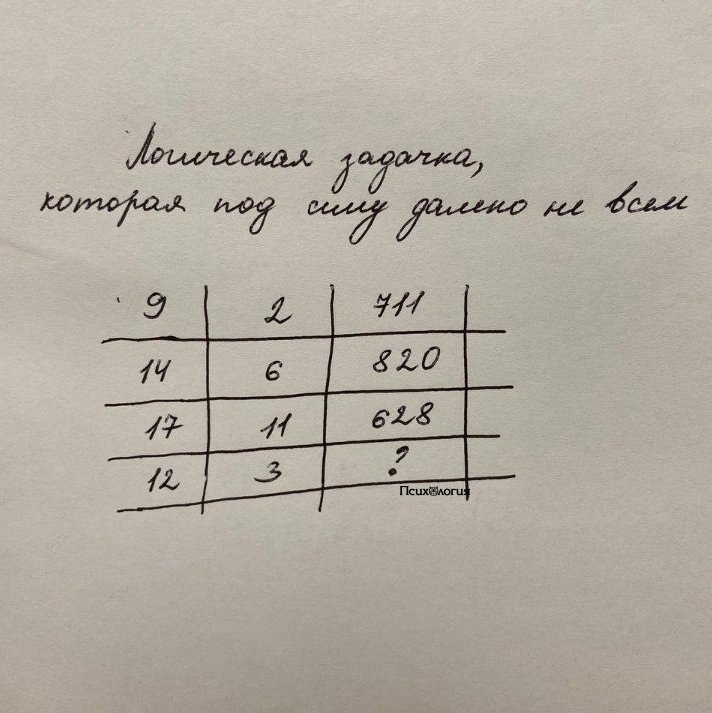 Логическая задачка,
которая под силу далеко не всем
9 2 711
14 6 820
17 11 628
12 3 ?
Психология